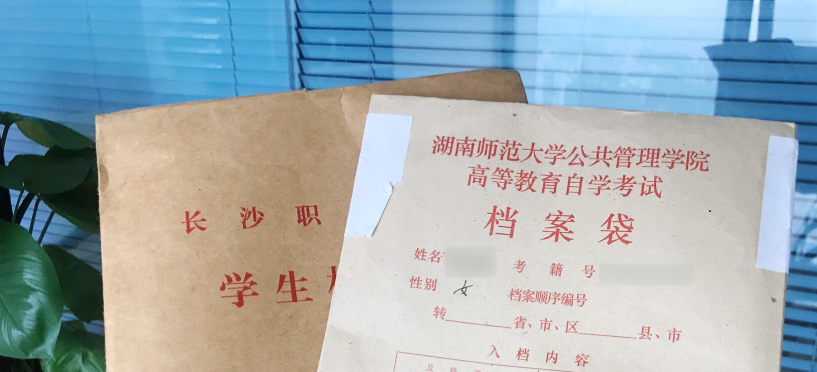 长沙职
学生
湖南师范大学公共管理学院
高等教育自学考试
档案袋
姓名 考籍号
性别 女 档案顺序编号
转 省、市、区 县、市
入档内容